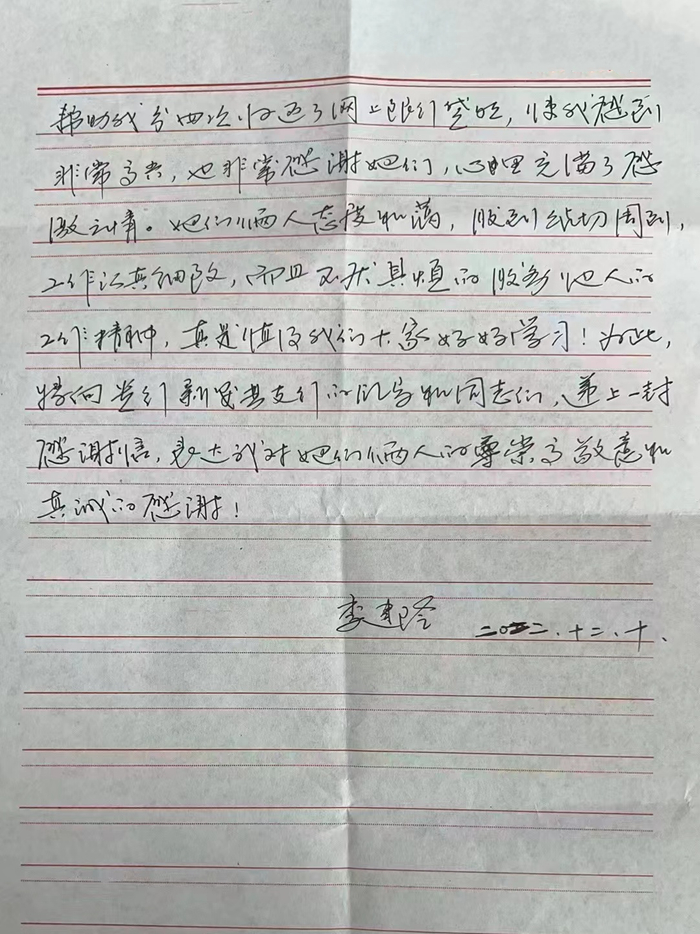 帮助我分四次归还了网上银行贷款，使我感到
非常高兴，也非常感谢她们，心里充满了感
激之情。她们俩人态度和蔼，服务热切周到，
工作认真细致，而且不厌其烦的服务他人的
工作精神，真是值得我们大家好好学习！为此，
特向贵行新民县支行的领导和同志们，递上一封
感谢信，表达我对她们俩人的尊崇高敬意和
真诚的感谢！
李建 二〇二二.十二.十.